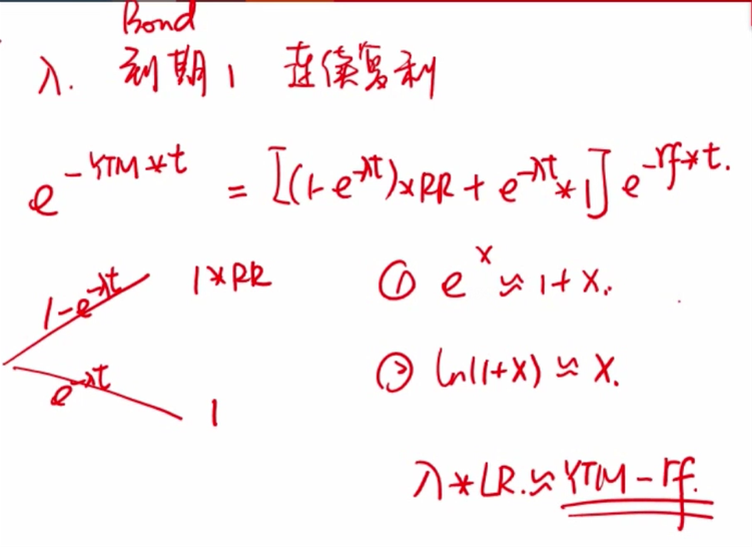 Bond
λ. 到期1 连续复利
e^{-YTM*t} = [(1-e^{-λt})*RR + e^{-λt}*1] e^{-rf*t}.
1-e^{-λt} 1*RR
① e^x ≈ 1+X.
e^{-λt} 1
② ln(1+X) ≈ X.
λ*LR.≈ YTM-rf.